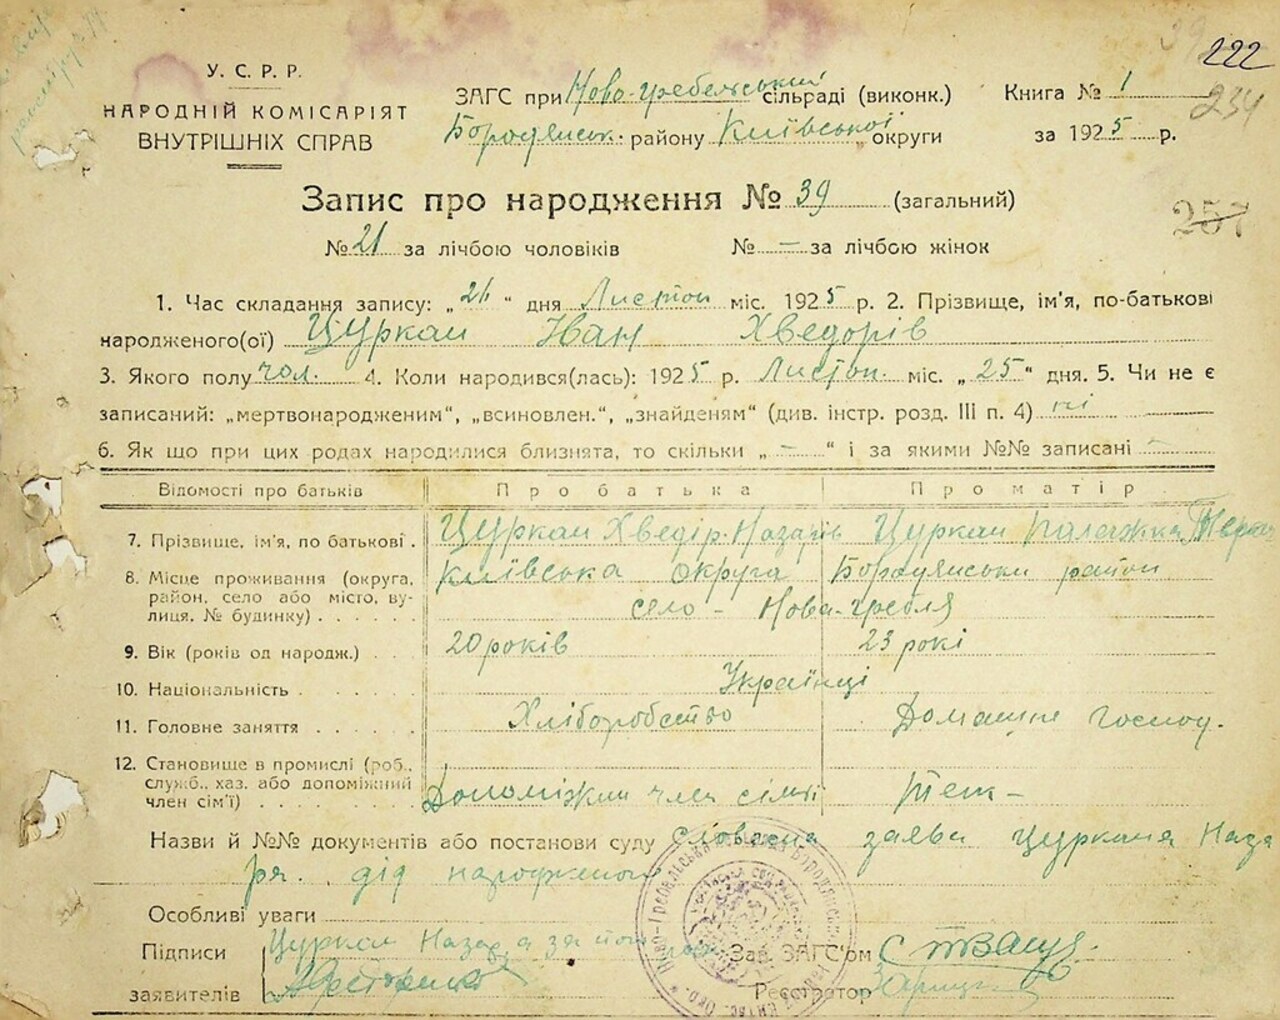 222
234
257
У. С. Р. Р.
НАРОДНІЙ КОМІСАРІЯТ
ВНУТРІШНІХ СПРАВ
ЗАГС при Ново-Гребельській сільраді (виконк.) Книга № 1
Бородянськ. району Київської округи за 1925 р.
Запис про народження № 39 (загальний)
№ 21 за лічбою чоловіків № — за лічбою жінок
1. Час складання запису: „26“ дня Листоп міс. 1925 р. 2. Прізвище, ім'я, по-батькові
народженого(ої) Цуркан Іван Хведорів
3. Якого полу чол. 4. Коли народився(лась): 1925 р. Листоп. міс. „25“ дня. 5. Чи не є
записаний: „мертвонародженим“, „всиновлен.“, „знайденям“ (див. інстр. розд. III п. 4) ні
6. Як що при цих родах народилися близнята, то скільки „ — “ і за якими №№ записані —
Відомості про батьків Про батька Про матір
7. Прізвище, ім'я, по батькові . Цуркан Хведір Назарів Цуркан Палажка
8. Місце проживання (округа, район, село або місто, вулиця, № будинку) . . . . . . Київська округа Бородянськи район
село - Нова-Гребля
9. Вік (років од народж.) . . . 20 років 23 рокі
10. Національність . . . . . . . Українці
11. Головне заняття . . . . . . Хліборобство Домашне господ.
12. Становище в промислі (роб., служб., хаз. або допоміжний член сім'ї) . . . . . . . . Допоміжни член сімьі теж -
Назви й №№ документів або постанови суду словесна заява Цуркана Наза
ря. дід народженого
Особливі уваги
Підписи Цуркан Назар а за Зав. ЗАГС'ом
заявителів Реєстратор